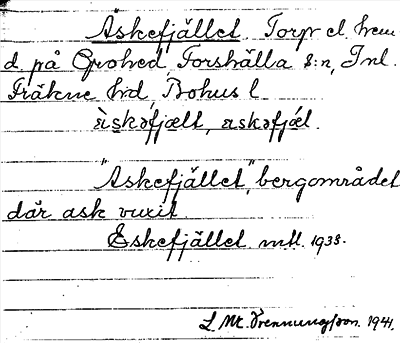 Askefjället. Torp el. hem
d. på Grohed, Forshälla s:n, Inl.
Fräkne hrd, Bohus l
àskəfjælt, askəfjǽl.
"Askefjället", bergområdet
där ask vuxit.
Eskefjället mtl. 1933.
1941.